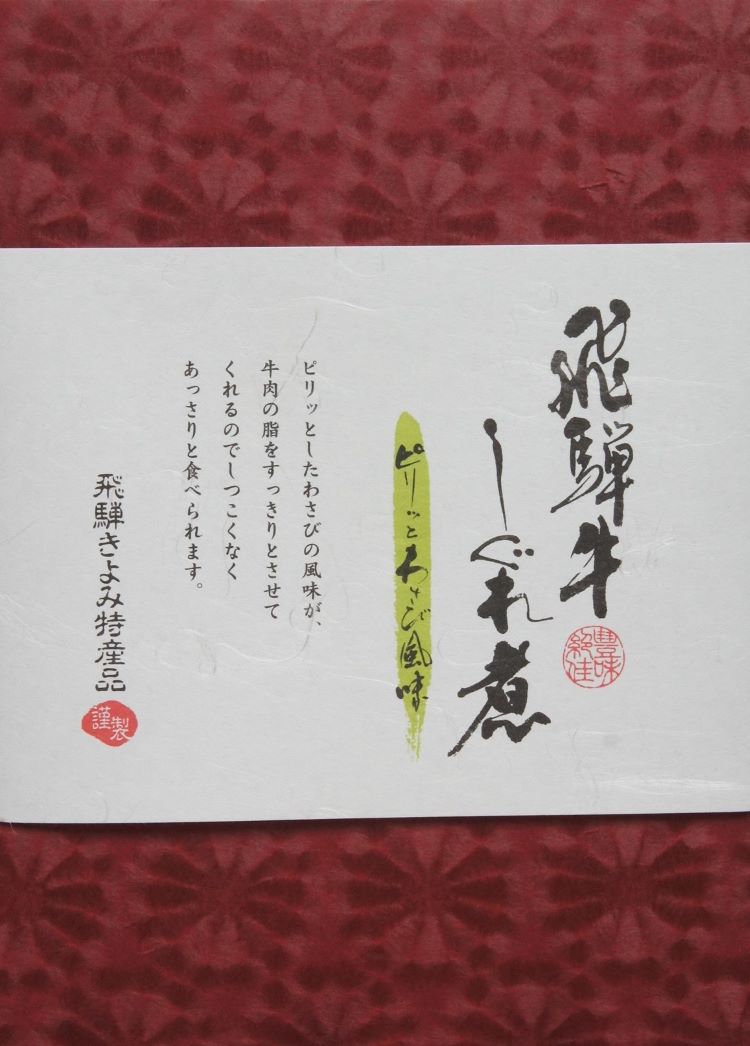 飛騨牛
しぐれ煮
豊味絶佳
ピリッとわさび風味
ピリッとしたわさびの風味が、
牛肉の脂をすっきりとさせて
くれるのでしつこくなく
あっさりと食べられます。
飛騨きよみ特産品
謹製